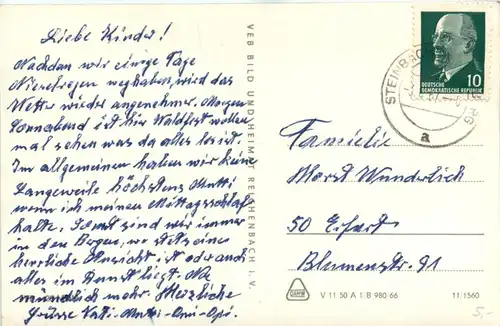 Liebe Kinder!
Nachdem wir einige Tage
Nieselregen weghaben, wird das
Wetter wieder angenehmer. Morgen
Sonnabend ist hier Waldfest wollen
mal sehen was da alles los ist.
Im allgemeinen haben wir keine
Langeweile höchstens Mutti
wenn ich meinen Mittagsschlaf
halte. Sonst sind wir immer
in den Bergen, wo stets eine
herrliche Aussicht ist oder auch
alles im Dunst liegt. Na
mündlich mehr. Herzliche
Grüsse Vati-Mutti-Omi-Opi.
VEB BILD UND HEIMAT REICHENBACH I. V.
STEINBACH
a
10
DEUTSCHE
DEMOKRATISCHE REPUBLIK
Familie
Horst Wunderlich
50 Erfurt
Blumenstr. 91
V 11 50 A 1 B 980 66
11/1560
5,-